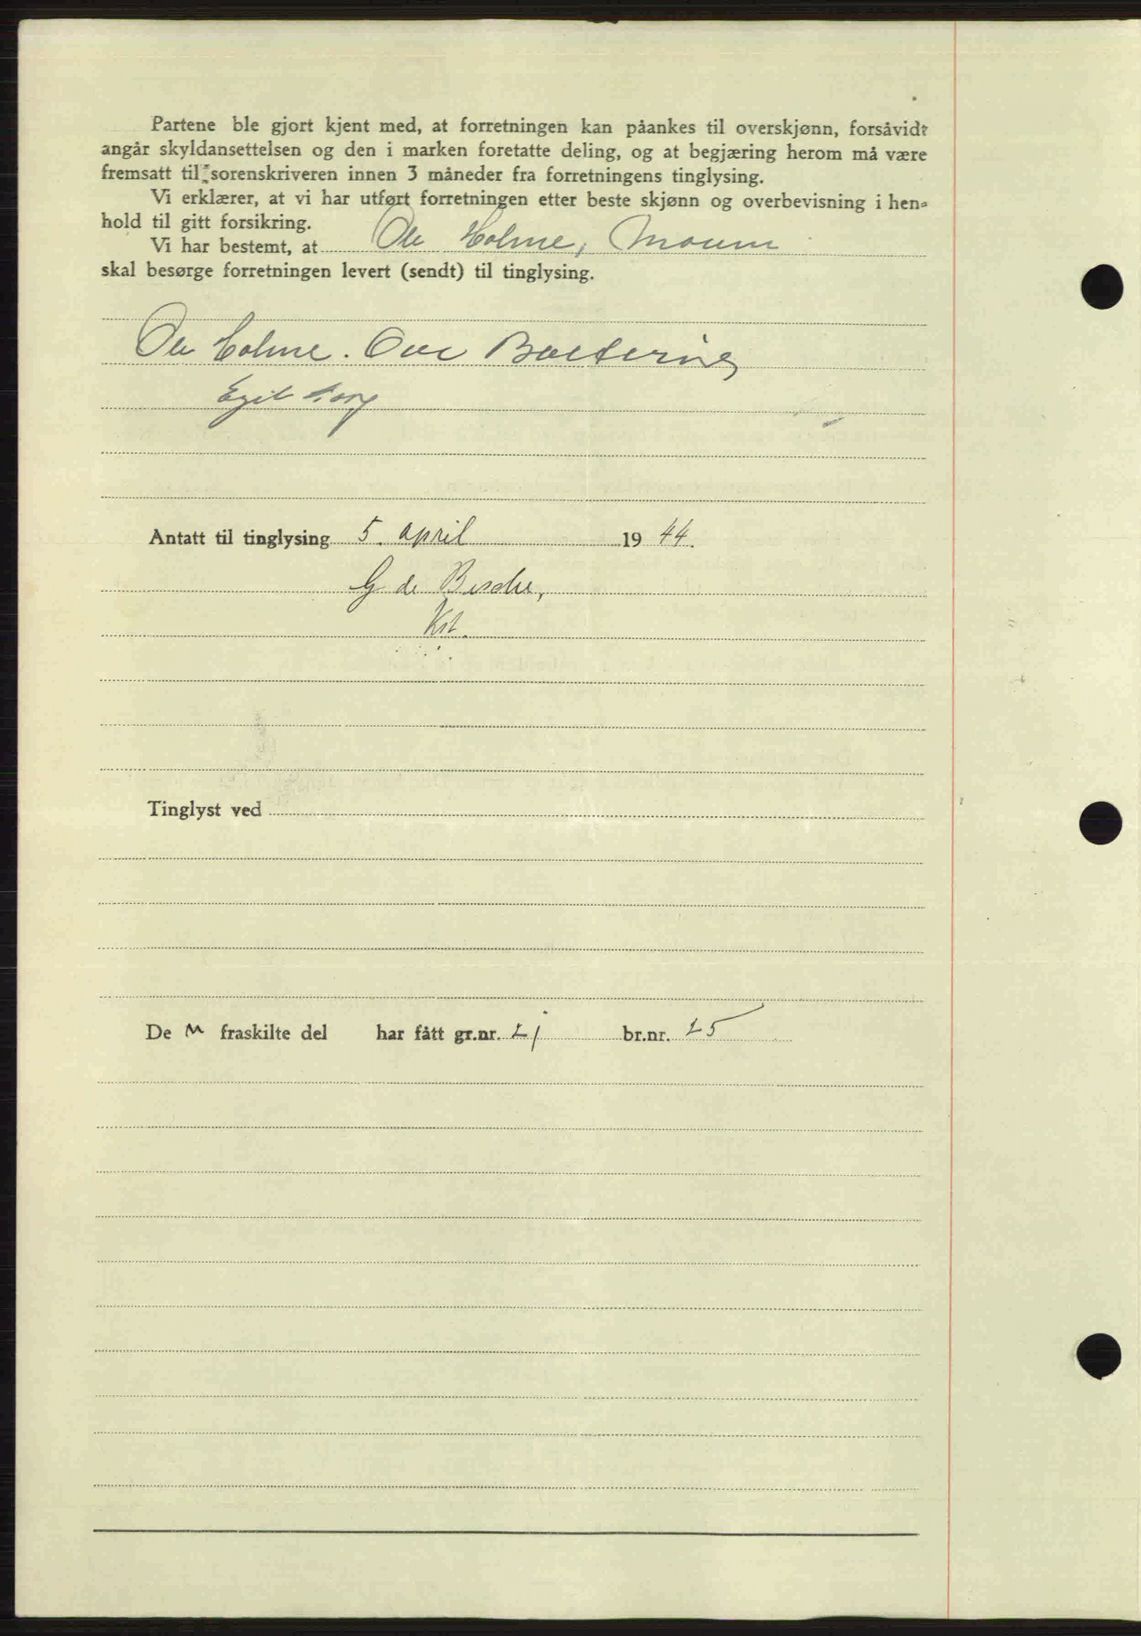 Partene ble gjort kjent med, at forretningen kan påankes til overskjønn, forsåvidt
angår skyldansettelsen og den i marken foretatte deling, og at begjæring herom må være
fremsatt til sorenskriveren innen 3 måneder fra forretningens tinglysing.
Vi erklærer, at vi har utført forretningen etter beste skjønn og overbevisning i hen-
hold til gitt forsikring.
Vi har bestemt, at Ole Holme,
skal besørge forretningen levert (sendt) til tinglysing.
Ole Holme.
Egil
Antatt til tinglysing 5. april 1944.
G de Besche,
Kst.
Tinglyst ved
De n fraskilte del har fått gr.nr. 21 br.nr. 25